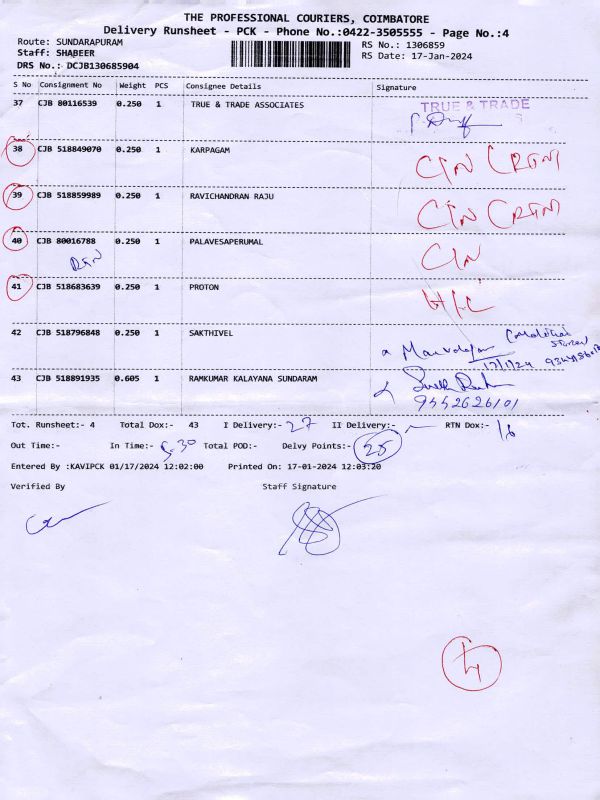 THE PROFESSIONAL COURIERS, COIMBATORE
Delivery Runsheet - PCK - Phone No.:0422-3505555 - Page No.:4
Route: SUNDARAPURAM
RS No.: 1306859
Staff: SHABEER
RS Date: 17-Jan-2024
DRS No.: DCJB130685904
S No Consignment No Weight PCS Consignee Details Signature
37 CJB 80116539 0.250 1 TRUE & TRADE ASSOCIATES TRUE & TRADE
38 CJB 518849070 0.250 1 KARPAGAM
39 CJB 518859989 0.250 1 RAVICHANDRAN RAJU
40 CJB 80016788 0.250 1 PALAVESAPERUMAL
41 CJB 518683639 0.250 1 PROTON
42 CJB 518796848 0.250 1 SAKTHIVEL
17/1/24
43 CJB 518891935 0.605 1 RAMKUMAR KALAYANA SUNDARAM
Tot. Runsheet:- 4 Total Dox:- 43 I Delivery:- 27 II Delivery:- RTN Dox:- 16
Out Time:- In Time:- 5.30 Total POD:- Delvy Points:- 25
Entered By :KAVIPCK 01/17/2024 12:02:00 Printed On: 17-01-2024 12:03:20
Verified By Staff Signature